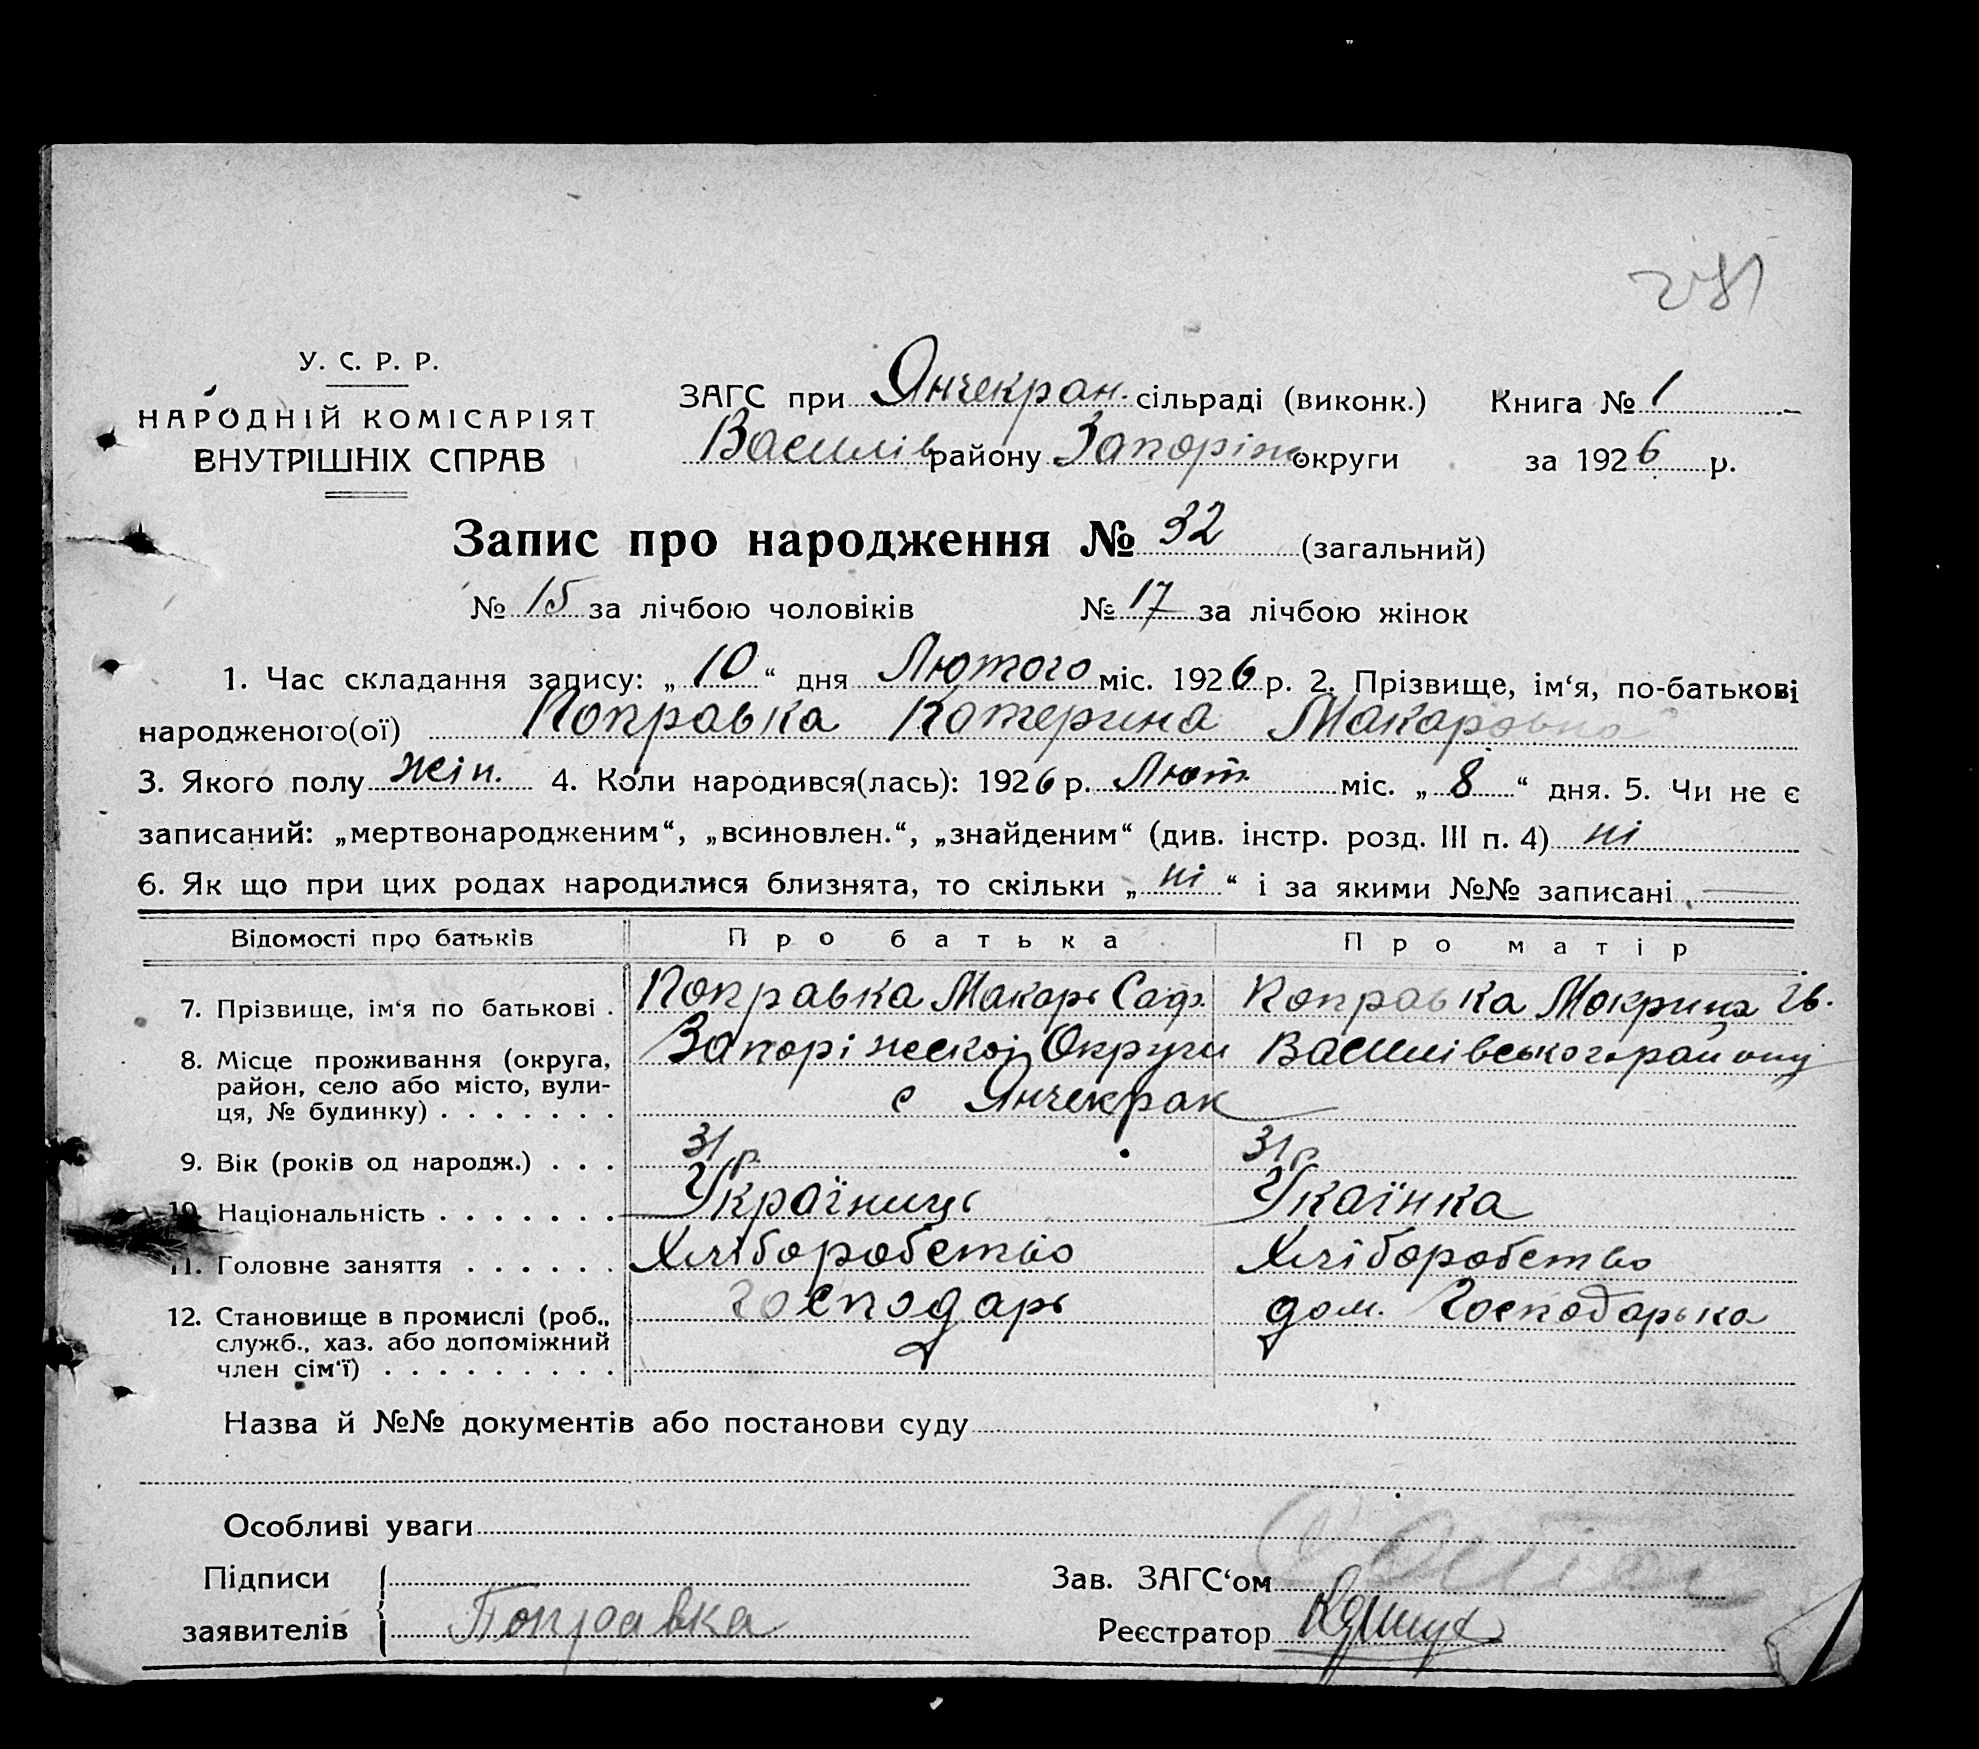 281
У. С. Р. Р.
НАРОДНІЙ КОМІСАРІЯТ
ВНУТРІШНІХ СПРАВ
ЗАГС при Янчекран. сільраді (виконк.) Книга № 1
Василів району Запоріж округи за 1926 р.
Запис про народження № 32 (загальний)
№ 15 за лічбою чоловіків № 17 за лічбою жінок
1. Час складання запису: „10“ дня Лютого міс. 1926 р. 2. Прізвище, ім‘я, по-батькові
народженого(ої) Поправка Катерина Макаровна
3. Якого полу жін. 4. Коли народився(лась): 1926 р. Лют міс. „8“ дня. 5. Чи не є
записаний: „мертвонародженим“, „всиновлен.“, „знайденим“ (див. інстр. розд. III п. 4) ні
6. Як що при цих родах народилися близнята, то скільки „ні“ і за якими №№ записані —
Відомості про батьків Про батька Про матір
7. Прізвище, ім‘я по батькові . Поправка Макарь Саф. Поправка Мокрина Ів.
8. Місце проживання (округа, Запоріжской Округи Василівського району
район, село або місто, вули-
ця, № будинку) . . . . . . . с Янчекрак
9. Вік (років од народж.) . . . 31 р. 31 р
10. Національність . . . . . . . Україниць Укаїнка
11. Головне заняття . . . . . . Хліборобство Хліборобство
12. Становище в промислі (роб., господарь дом. Господарька
служб., хаз. або допоміжний
член сім‘ї) . . . . . . . . .
Назва й №№ документів або постанови суду
Особливі уваги
Підписи Зав. ЗАГС‘ом
заявителів Поправка Реєстратор